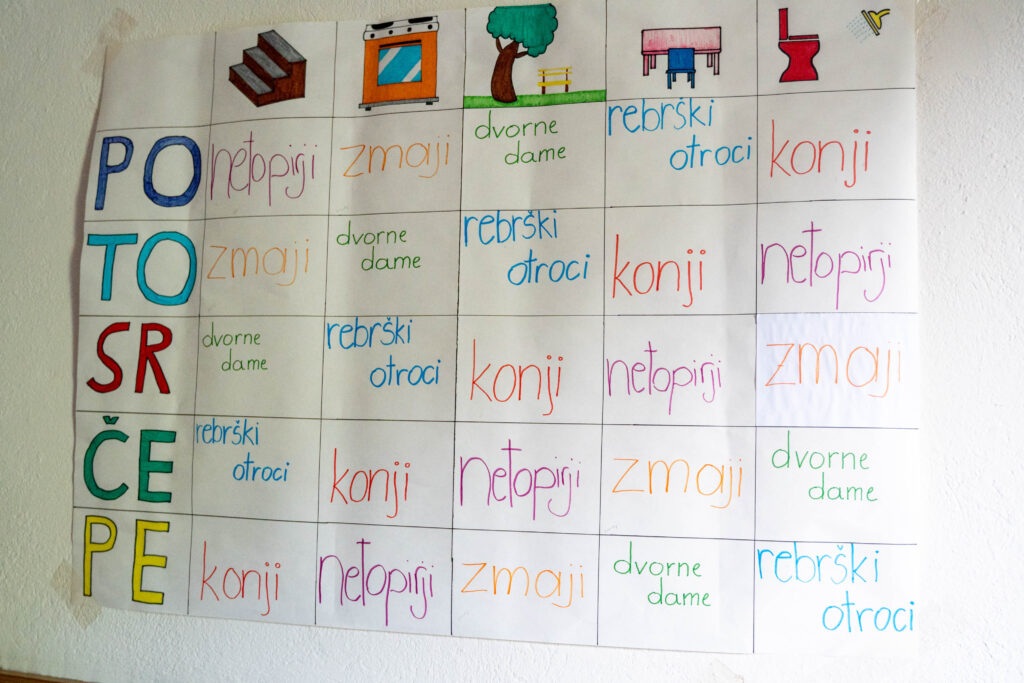 PO
netopirji
zmaji
dvorne
dame
rebrški
otroci
konji
TO
zmaji
dvorne
dame
rebrški
otroci
konji
netopirji
SR
dvorne
dame
rebrški
otroci
konji
netopirji
zmaji
ČE
rebrški
otroci
konji
netopirji
zmaji
dvorne
dame
PE
konji
netopirji
zmaji
dvorne
dame
rebrški
otroci